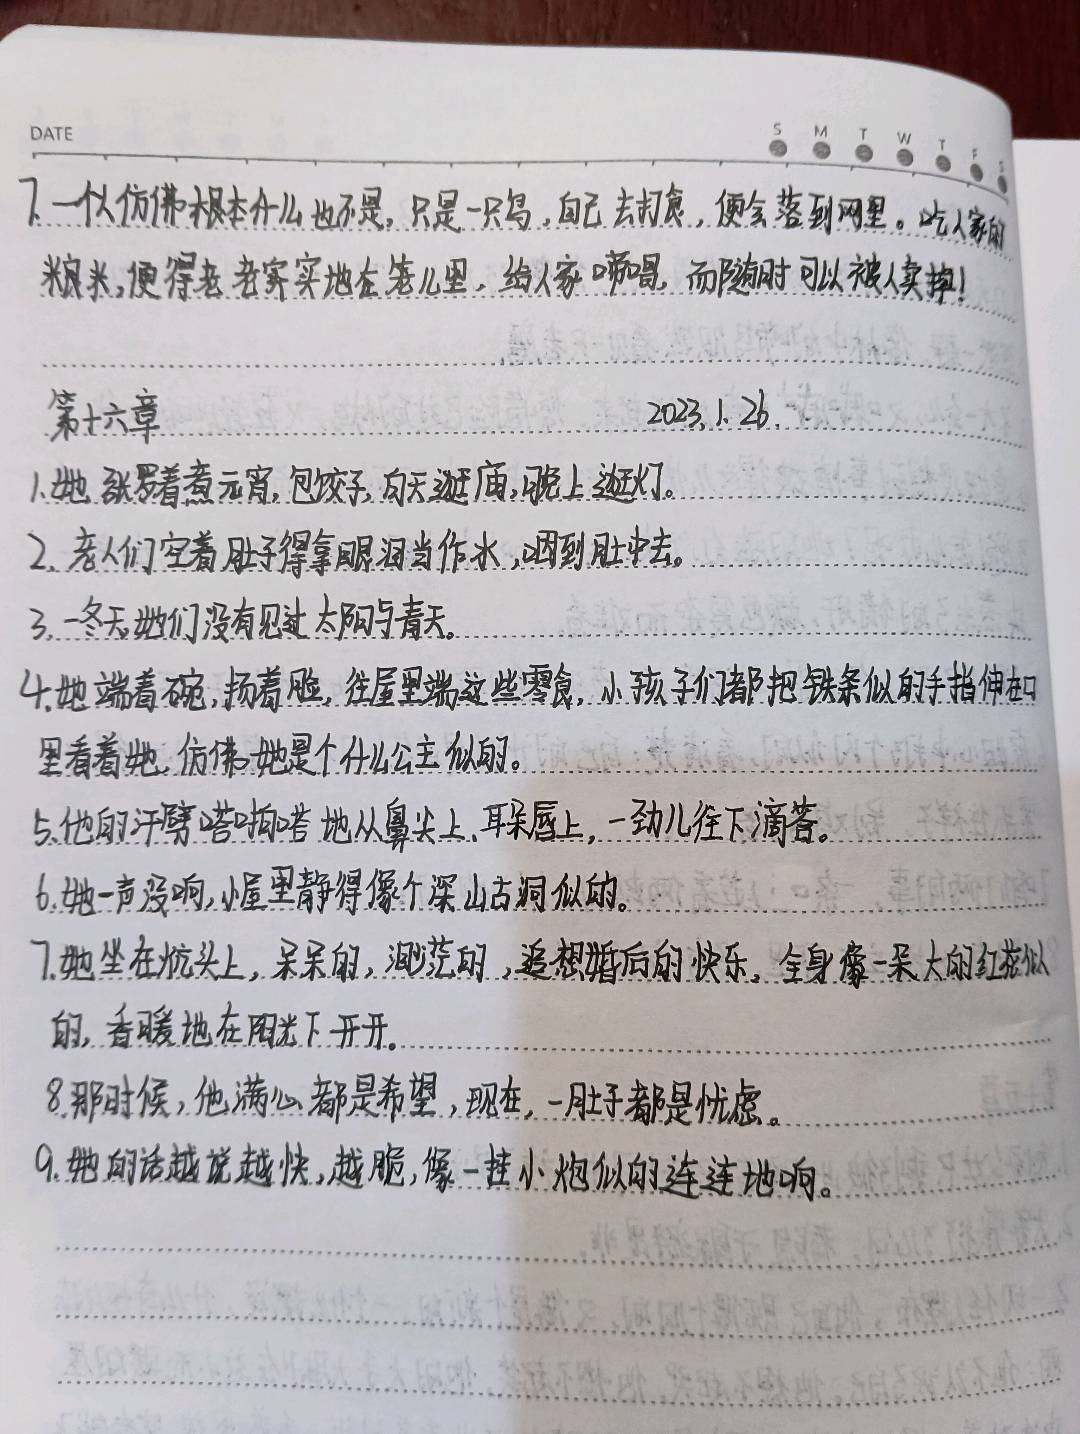 DATE
S M T W T F S
7. 一个人仿佛根本什么也不是，只是一只鸟，自己去打食，便会落到网里。吃人家的
粮米，便得老老实实地在笼儿里，给人家啼唱，而随时可以被人卖掉！
第十六章 2023.1.26.
1. 她张罗着煮元宵，包饺子，白天逛庙，晚上逛灯。
2. 老人们空着肚子得拿眼泪当作水，咽到肚中去。
3. 一冬天，她们没有见过太阳与青天。
4. 她端着碗，扬着脸，往屋里端这些零食，小孩子们都把铁条似的手指伸在口
里看着她，仿佛她是个什么公主似的。
5. 他的汗劈嗒啪嗒地从鼻尖上、耳朵唇上，一劲儿往下滴答。
6. 她一声没响，小屋里静得像个深山古洞似的。
7. 她坐在炕头上，呆呆的，渺茫的，追想婚后的快乐，全身像一朵大的红花似
的，香暖地在阳光下开开。
8. 那时候，他满心都是希望，现在，一肚子都是忧虑。
9. 她的话越说越快，越脆，像一挂小炮似的连连地响。